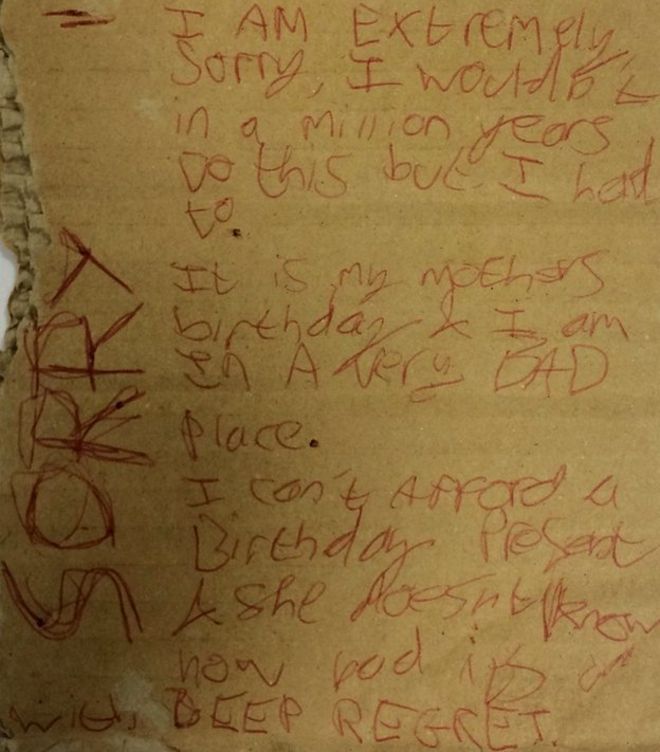 I AM Extremely
Sorry, I wouldn't
in a million years
Do this but I had
to.
It is my mothers
birthday & I am
in A very BAD
place.
I can't Afford a
Birthday Present
& she doesn't know
how bad it's
with DEEP REGRET.
SORRY